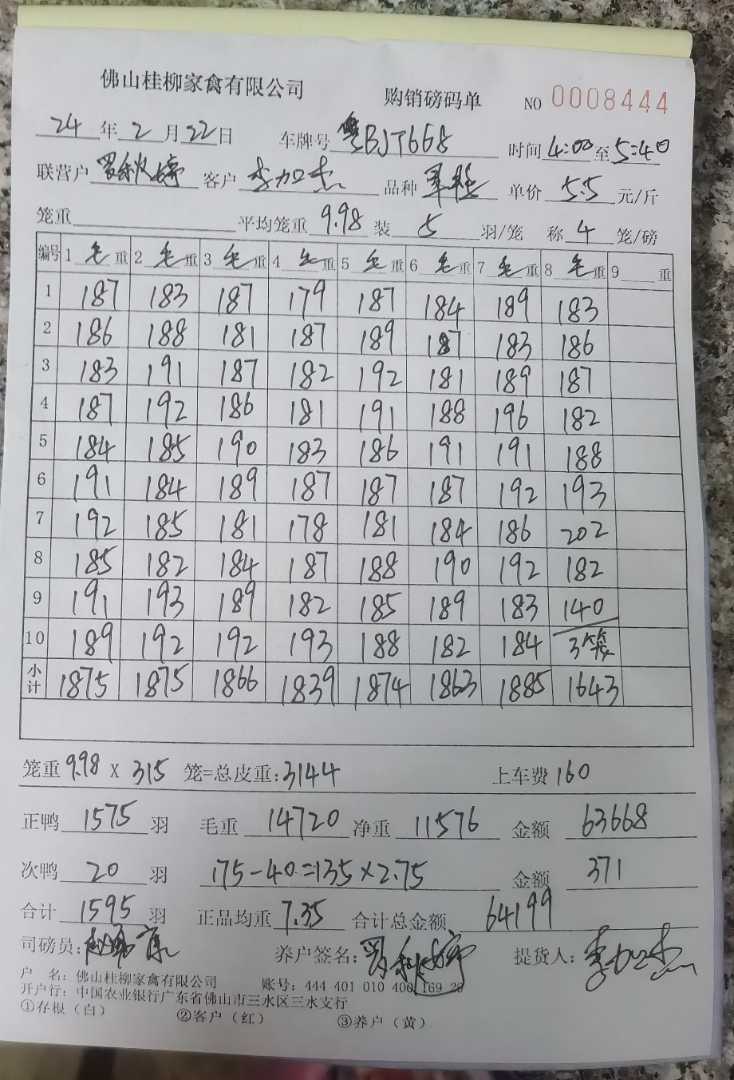 佛山桂柳家禽有限公司 购销磅码单 NO 0008444
24 年 2 月 22 日 车牌号 粤BJT668 时间 4:00 至 5:40
联营户 罗秋婷 客户 李加杰 品种 单价 5.5 元/斤
笼重 平均笼重 9.98 装 5 羽/笼 称 4 笼/磅
编号 1 毛 重 2 毛 重 3 毛 重 4 毛 重 5 毛 重 6 毛 重 7 毛 重 8 毛 重 9 重
1 187 183 187 179 187 184 189 183
2 186 188 181 187 189 187 183 186
3 183 191 187 182 192 181 189 187
4 187 192 186 181 191 188 196 182
5 184 185 190 183 186 191 191 188
6 191 184 189 187 187 187 192 193
7 192 185 181 178 181 184 186 202
8 185 182 184 187 188 190 192 182
9 191 193 189 182 185 189 183 140
10 189 192 192 193 188 182 184 3笼
小计 1875 1875 1866 1839 1874 1863 1885 1643
笼重 9.98 X 315 笼=总皮重:3144 上车费 160
正鸭 1575 羽 毛重 14720 净重 11576 金额 63668
次鸭 20 羽 175-40=135×2.75 金额 371
合计 1595 羽 正品均重 7.35 合计总金额 64199
司磅员: 养户签名: 罗秋婷 提货人: 李加杰
户 名: 佛山桂柳家禽有限公司 账号: 444 401 010 400 169 28
开户行: 中国农业银行广东省佛山市三水区三水支行
①存根（白） ②客户（红） ③养户（黄）